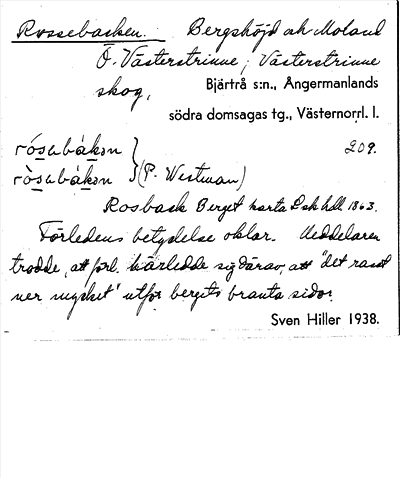 Rossebacken. Bergshöjd och Moland
Ö. Västerstrinne, Västerstrinne
skog,
Bjärtrå s:n., Ångermanlands
södra domsagas tg., Västernorrl. l.
209.
rósəbákən
ròsəbákən } (P. Westman)
Rosback Berget karta Lsk hdl 1863.
Förledens betydelse oklar. Meddelaren
trodde, att förl. härledde sig därav, att "det rasat
ner mycket" utför bergets branta sidor.
Sven Hiller 1938.